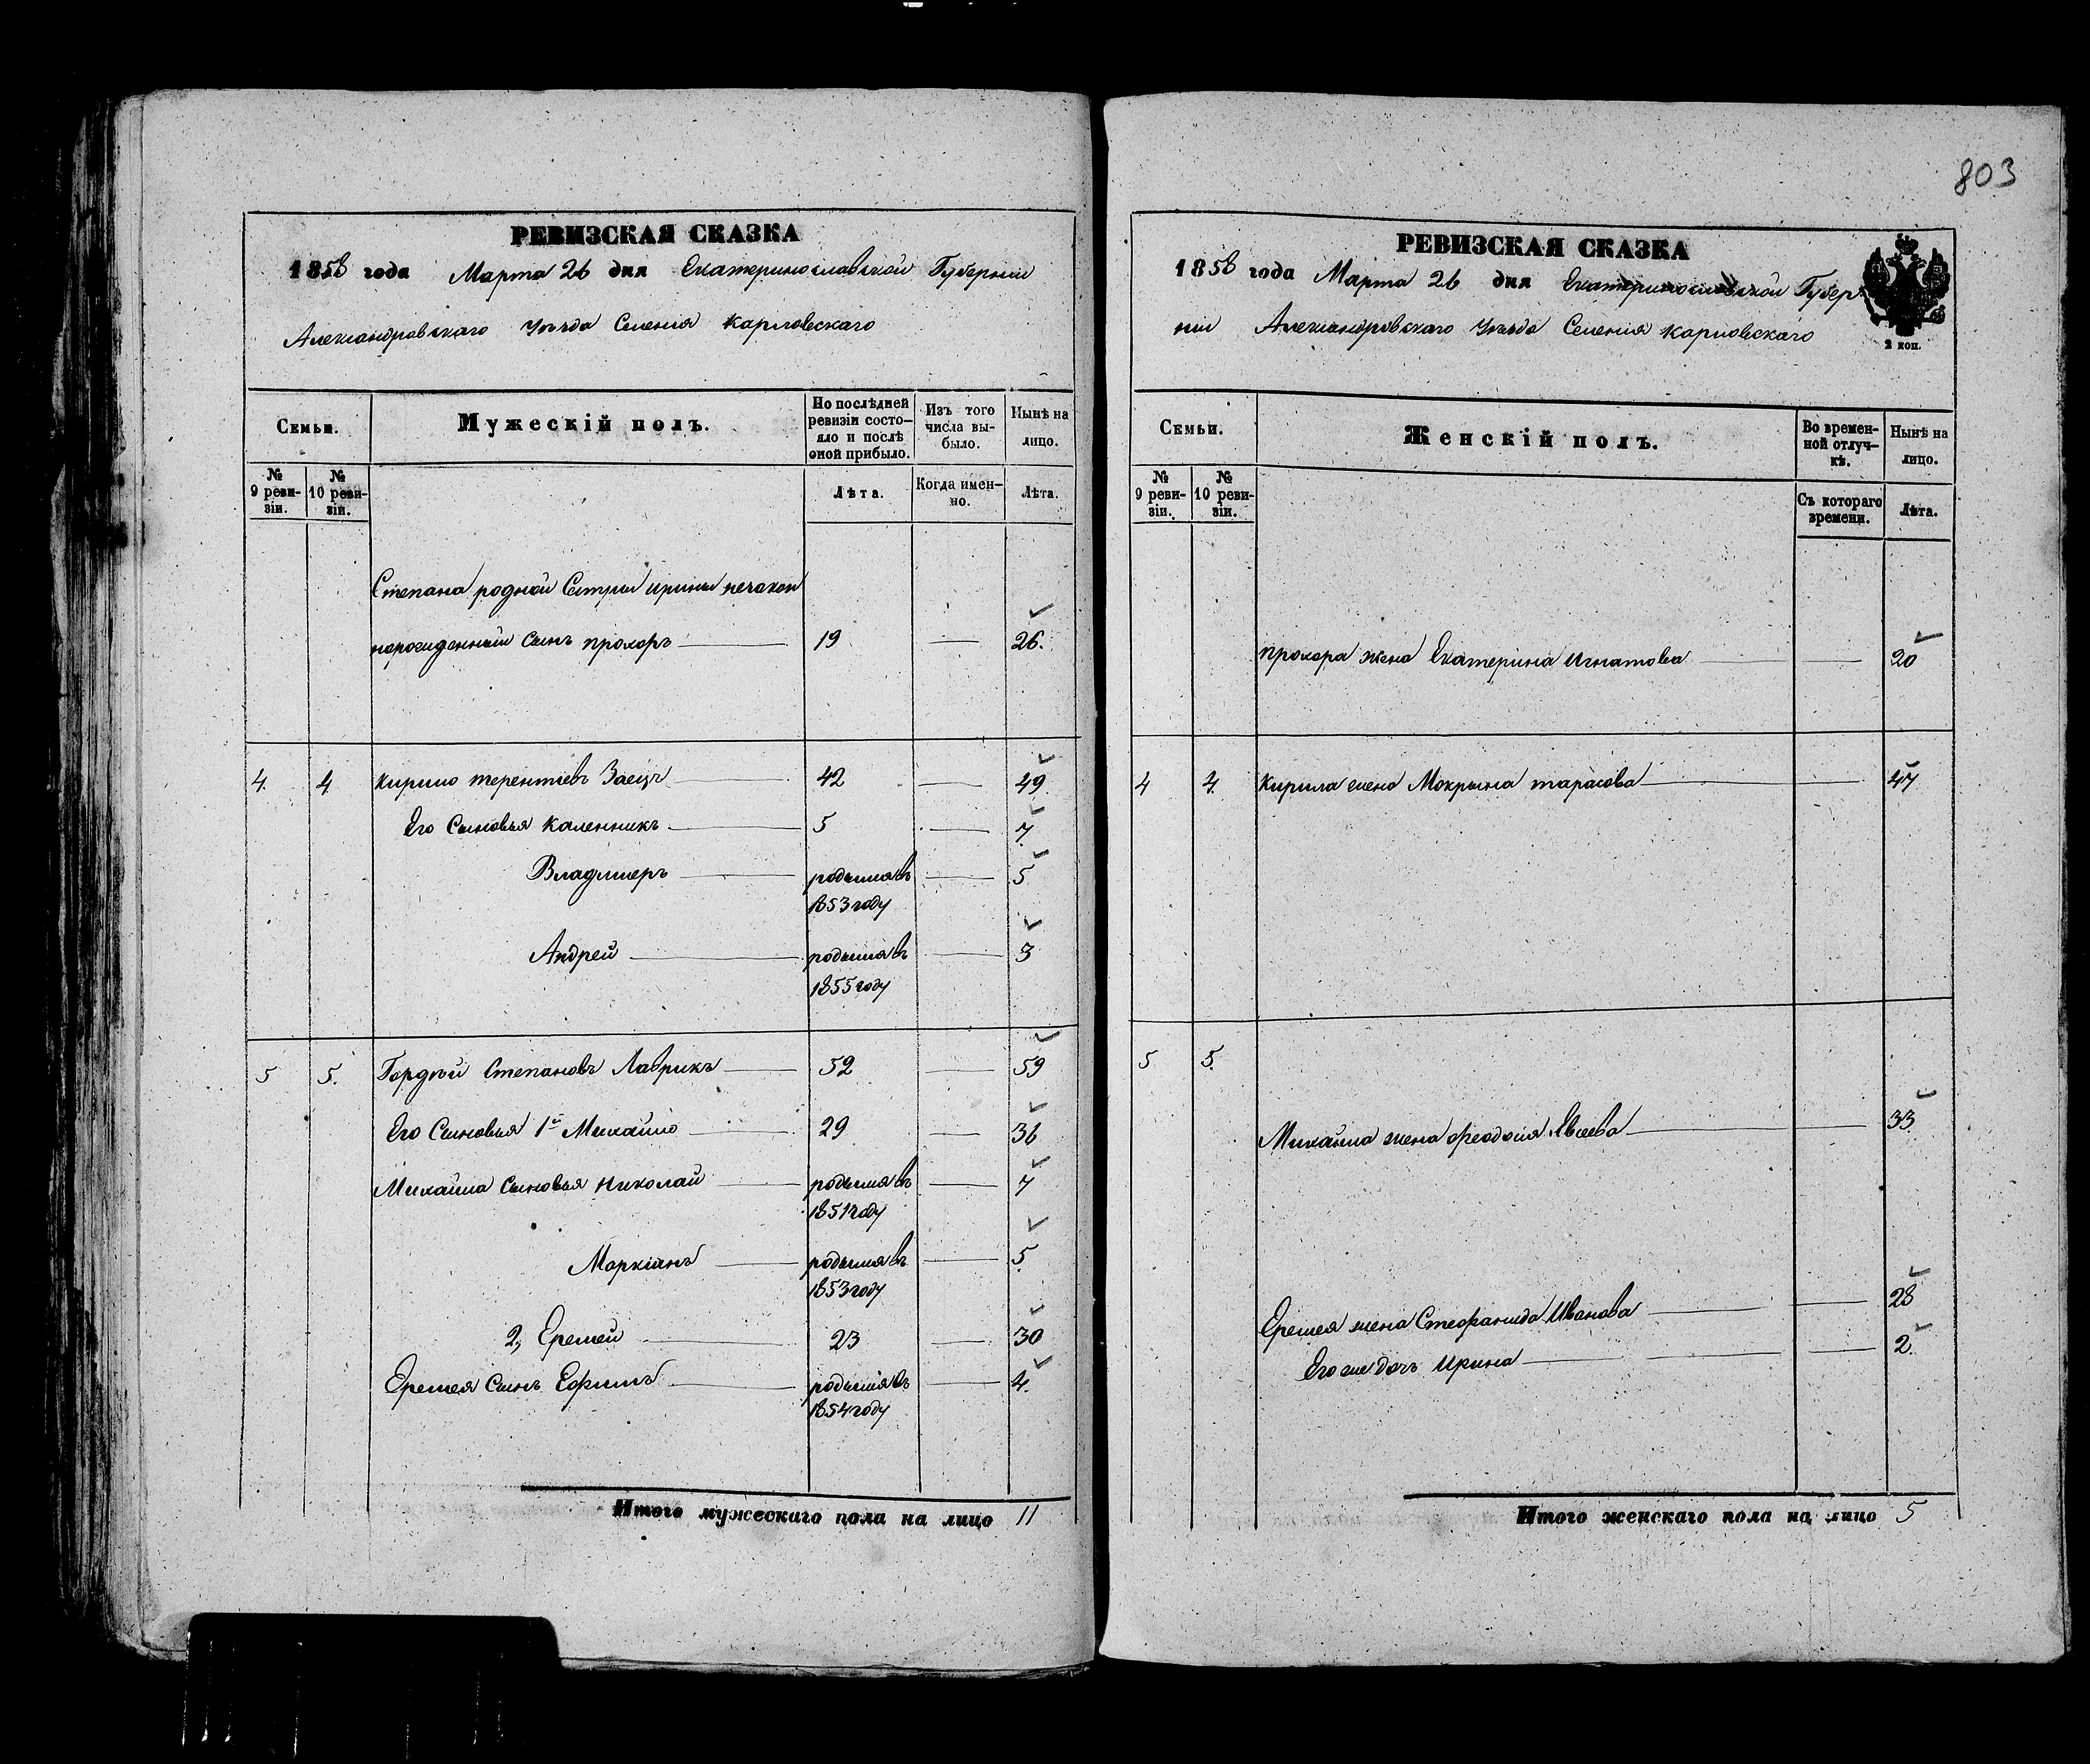 803
РЕВИЗСКАЯ СКАЗКА
1858 года Марта 26 дня Екатеринославской Губернии
Александровскаго Уѣзда Селенія Карловскаго
Семьи.
Мужескій полъ.
По послѣдней ревизіи состояло и послѣ оной прибыло.
Изъ того числа выбыло.
Нынѣ на лицо.
№ 9 ревизіи.
№ 10 ревизіи.
Лѣта.
Когда именно.
Лѣта.
Степана родной Сестры Ирины незакон
норожденный сынъ Прохоръ 19 — 26.
4. 4 Кирило Терентіевъ Заецъ 42 — 49.
Его Сыновья Каленникъ 5 — 7.
Владимеръ родился въ — 5
1853 году
Андрей родился въ — 3
1855 году
5 5. Гордѣй Степановъ Лаврикъ 52 — 59
Его Сыновья 1й Михайло 29 — 36
Михайла Сыновья Николай родился въ — 7
1851 году
Маркіанъ родился въ — 5.
1853 году
2, Еремей 23 — 30
Еремея Сынъ Ефимъ родился въ — 4.
1854 году
Итого мужескаго пола на лицо 11
РЕВИЗСКАЯ СКАЗКА
1858 года Марта 26 дня Екатеринославской Губер
ніи Александровскаго Уѣзда Селенія Карловскаго
2 коп.
Семьи.
Женскій полъ.
Во временной отлучкѣ.
Нынѣ на лицо.
№ 9 ревизіи.
№ 10 ревизіи.
Съ котораго времени.
Лѣта.
Прохора жена Екатерина Игнатова — 20
4 4. Кирила жена Мокрына Тарасова — 47
5 5.
Михайла жена Феодосія Явсеева — 33
Еремея жена Стефанида Иванова — 28
Его же дочь Ирина — 2.
Итого женскаго пола на лицо 5